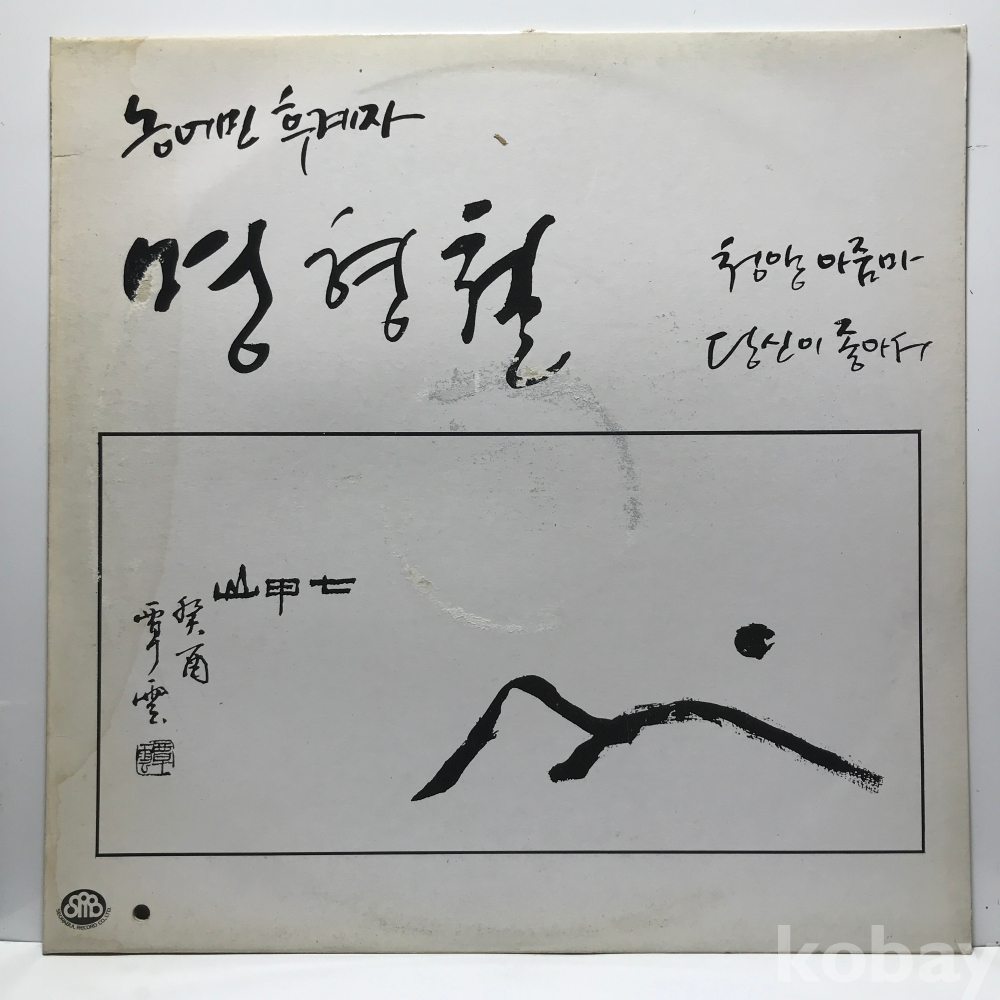 농어민 후계자
명형철
청양 아줌마
당신이 좋아서
山甲七
癸酉
覃雲
SRB
SEORABUL RECORD CO.,LTD
kobay